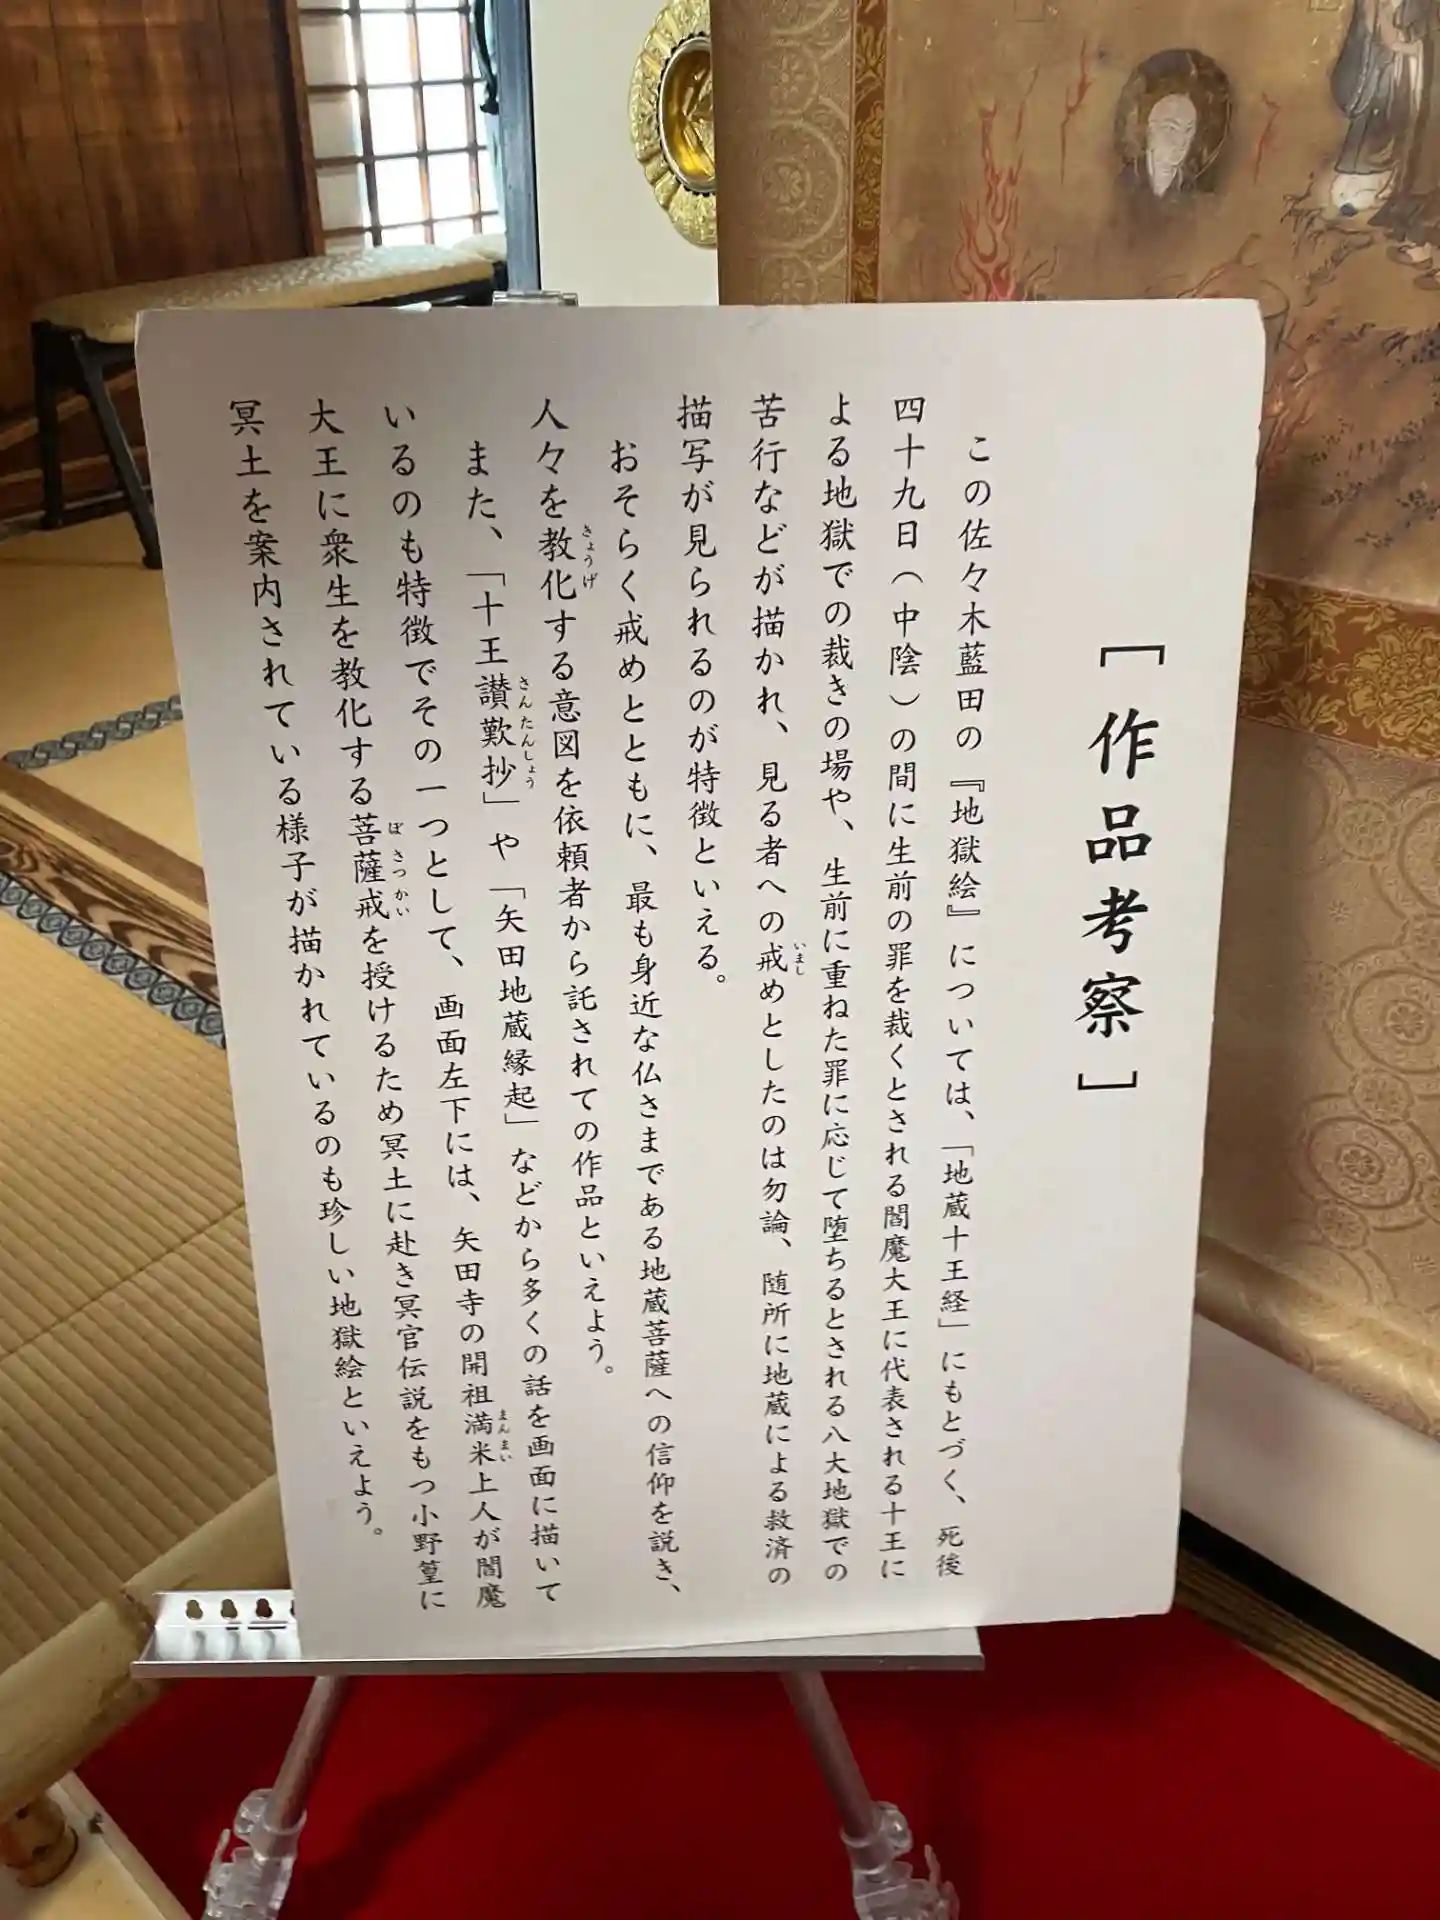 [作品考察]
この佐々木藍田の『地獄絵』については、「地蔵十王経」にもとづく、死後
四十九日(中陰)の間に生前の罪を裁くとされる閻魔大王に代表される十王に
よる地獄での裁きの場や、生前に重ねた罪に応じて堕ちるとされる八大地獄での
苦行などが描かれ、見る者への戒めとしたのは勿論、随所に地蔵による救済の
いまし
描写が見られるのが特徴といえる。
おそらく戒めとともに、最も身近な仏さまである地蔵菩薩への信仰を説き、
人々を教化する意図を依頼者から託されての作品といえよう。
きょうげ
また、「十王讃歎抄」や「矢田地蔵縁起」などから多くの話を画面に描いて
さんたんしょう
いるのも特徴でその一つとして、画面左下には、矢田寺の開祖満米上人が閻魔
まんまい
大王に衆生を教化する菩薩戒を授けるため冥土に赴き冥官伝説をもつ小野篁に
ぼさつかい
冥土を案内されている様子が描かれているのも珍しい地獄絵といえよう。